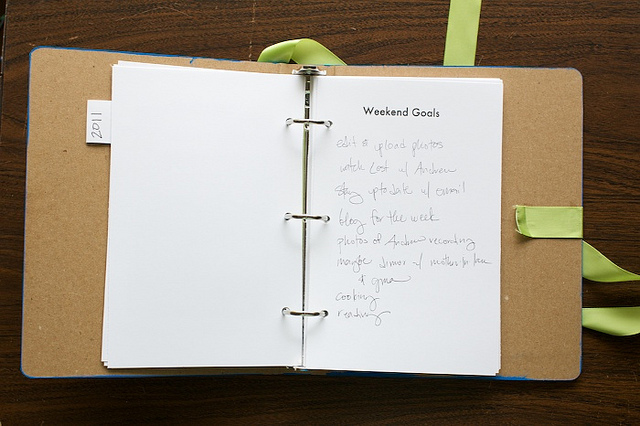 2011
Weekend Goals
edit & upload photos
watch Lost w/ Andrew
stay up to date w/ email
blog for the week
photos of Andrew recording
maybe dinner w/ mother in law
& gma
cooking
reading